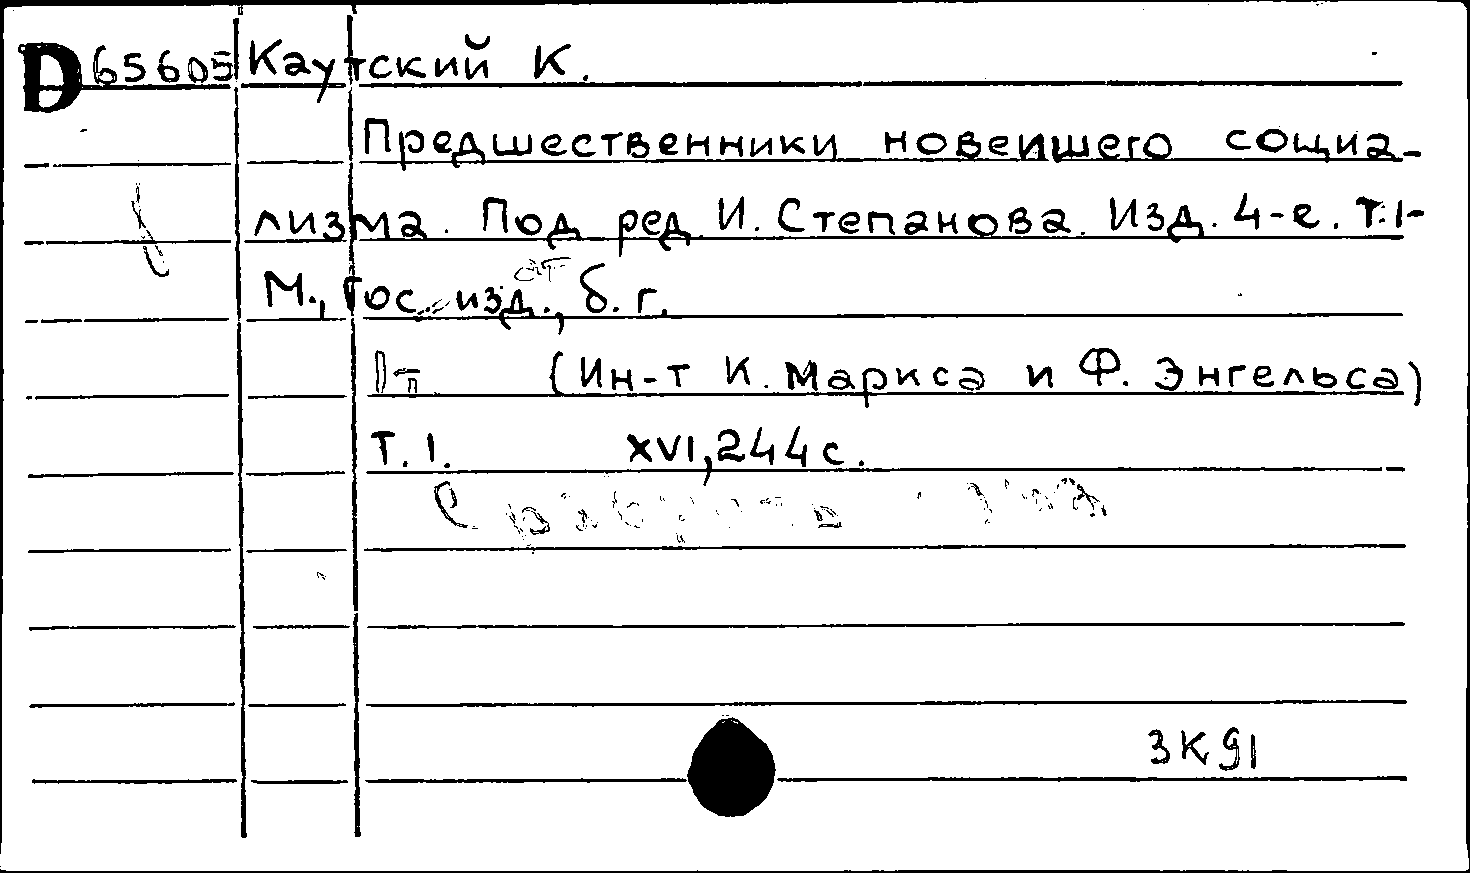 D 65605 Каутский К.
Предшественники новеишего социа-
лизма. Под ред. И. Степанова. Изд. 4-е. Т.1-
М., Гос. изд., б. г.
(Ин-т К. Маркса и Ф. Энгельса)
Т. 1. XVI, 244 с.
3К91